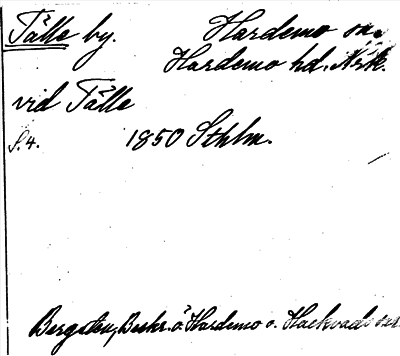 Tälle by. Hardemo sn.
Hardemo hd. Nrk.
vid Tälle
S. 4. 1850 Sthlm.
Bergsten, Beskr. ö. Hardemo o. Hackvads snr